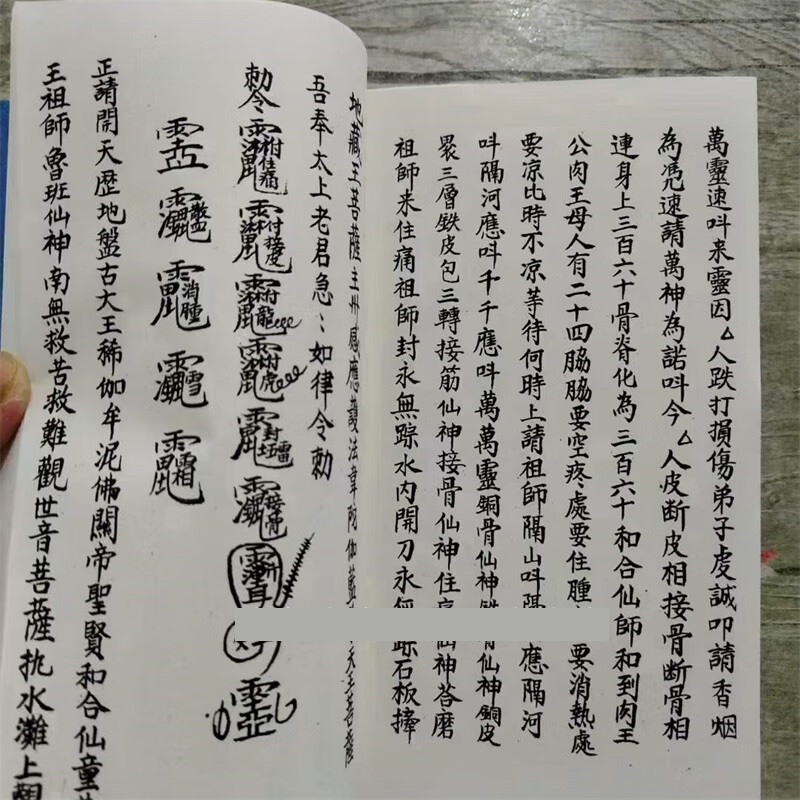 萬靈速呌来靈因△人跌打損傷弟子虔誠叩請香烟
為凴速請萬神為諾呌今△人皮断皮相接骨断骨相
連身上三百六十骨脊化為三百六十和合仙師和到肉王
公肉王母人有二十四脇脇要空疼處要住腫要消熱處
要凉比時不凉等待何時上請祖師隔山呌隔應隔河
呌隔河應呌千千應呌萬萬靈銅骨仙神鉄骨仙神銅皮
裹三層鉄皮包三轉接筋仙神接骨仙神住仙神荅磨
祖師来住痛祖師封永無踪水内開刀永無踪石板捧
地藏王菩薩主州感應護法韋陀伽藍天王菩薩
吾奉太上老君急：如律令勅
勅令
付住痛
付接皮
付龍
付虎
封
接骨
消腫
雪
霜
正請開天歷地盤古大王稀伽牟泥佛關帝聖賢和合仙童
王祖師魯班仙神南無救苦救難觀世音菩薩扡水灘上